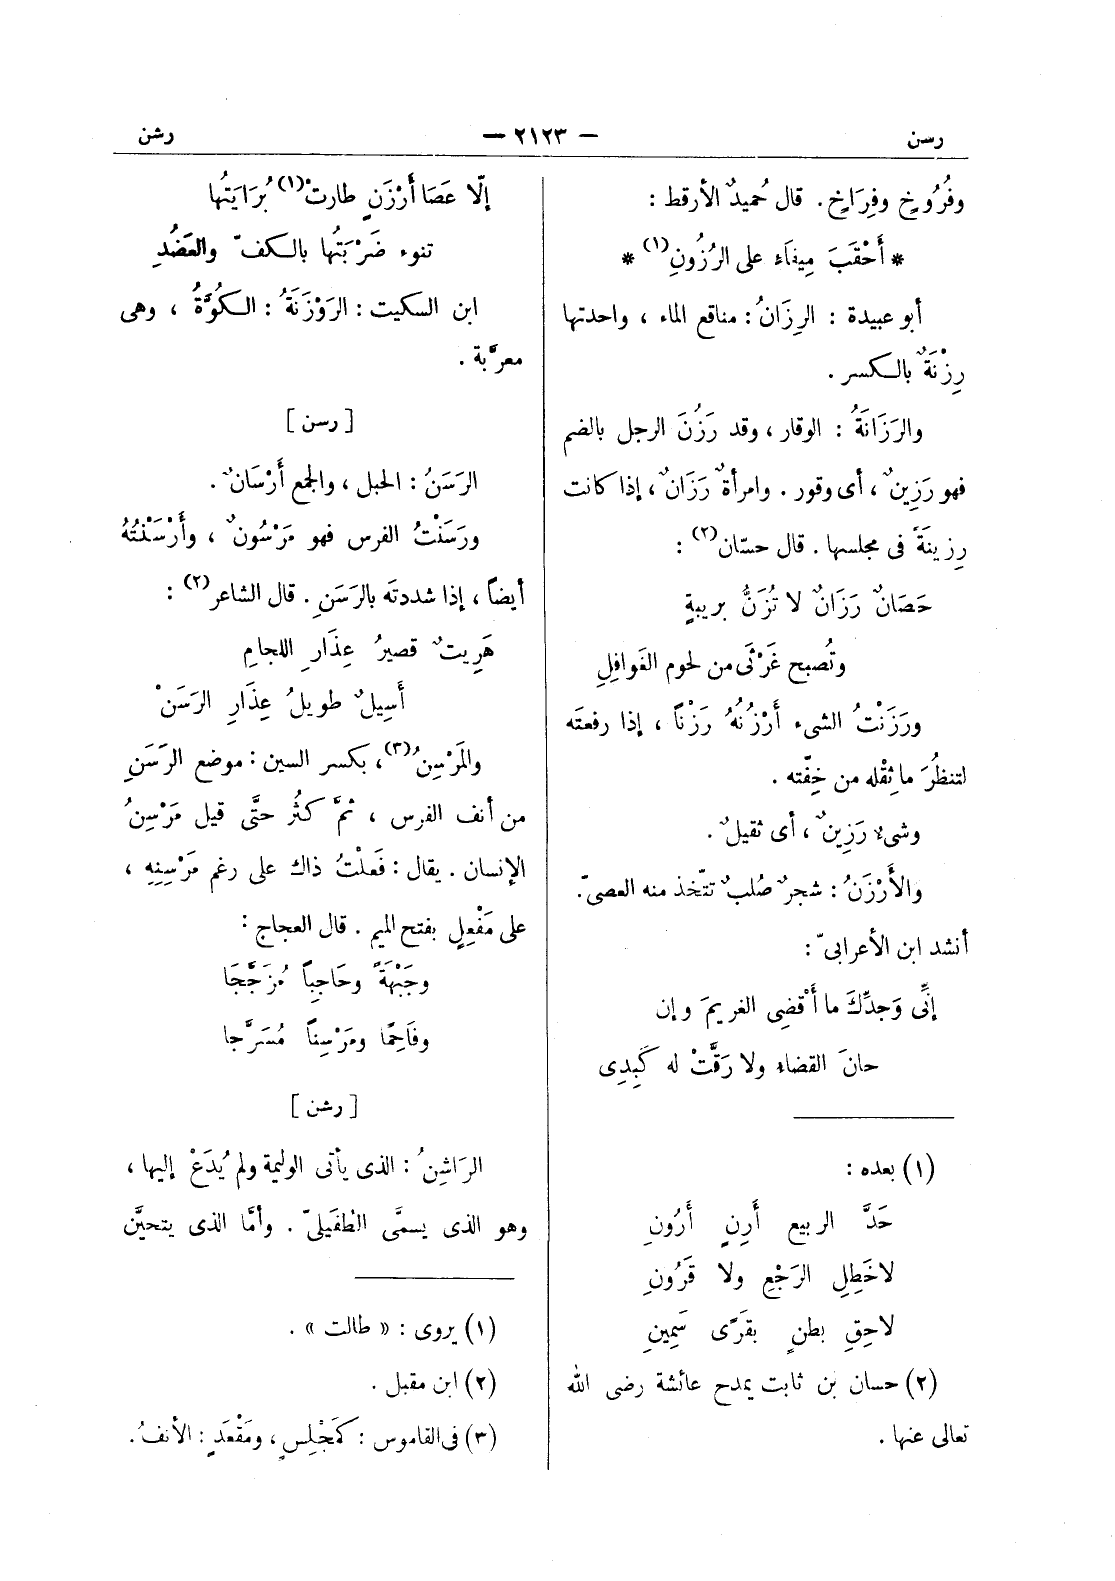 رسن — ٢١٢٣ — رشن
وفُرُوخٍ وفِرَاخٍ . قال حُميدٌ الأرقط :
* أَحْقَبَ مِيفَاءٍ على الرُزُونِ(١) *
أبو عبيدة : الرِزَانُ : مناقع الماء ، واحدتها
رِزْنَةٌ بالكسر .
والرَزَانَةُ : الوقار ، وقد رَزُنَ الرجل بالضم
فهو رَزِينٌ ، أى وقور . وامرأةٌ رَزَانٌ ، إذا كانت
رزينَةً فى مجلسها . قال حسّان(٢) :
حَصَانٌ رَزَانٌ لا تُزَنُّ بريبةٍ
وتُصبح غَرْثَى من لحوم الغَوافِلِ
ورَزَنْتُ الشىء أَرْزُنُهُ رَزْناً ، إذا رفعتَه
لتنظُرَ ما ثِقْله من خِفّته .
وشىء رَزِينٌ ، أى ثقيلٌ .
والأَرْزَنُ : شجرٌ صُلبٌ تتّخذ منه العصىّ .
أنشد ابن الأعرابىّ :
إنِّى وَجدِّكَ ما أَقْضِى الغريمَ وإن
حانَ القضاء ولا رَقَّتْ له كَبِدِى
(١) بعده :
حَدَّ الربيع أَرِنٍ أَرُونِ
لاخَطِلِ الرَجْعِ ولا قَرُونِ
لاحِقِ بطنٍ بقَرًى سَمِينِ
(٢) حسان بن ثابت يمدح عائشة رضى الله
تعالى عنها .
إلّا عَصَا أَرْزَنٍ طارتْ(١) بُرَايَتُها
تنوء ضَرْبَتُها بالكفّ والعَضُدِ
ابن السكيت : الرَوْزَنَةُ : الكُوَّةُ ، وهى
معرَّبة .
[ رسن ]
الرَسَنُ : الحبل ، والجمع أَرْسَانٌ .
ورَسَنْتُ الفرس فهو مَرْسُونٌ ، وأَرْسَنْتُهُ
أيضاً ، إذا شددتَه بالرَسَنِ . قال الشاعر(٢) :
هَرِيتٌ قصيرُ عِذَارِ اللجامِ
أَسِيلٌ طويلُ عِذَارِ الرَسَنْ
والمَرْسِنُ(٣) ، بكسر السين : موضع الرَسَنِ
من أنف الفرس ، ثمَّ كثُر حتَّى قيل مَرْسِنُ
الإنسان . يقال : فَعلْتُ ذاك على رغم مَرْسِنِهِ ،
على مَفْعِلٍ بفتح الميم . قال العجاج :
وجَبْهَةً وحَاجِباً مُزَجَّجَا
وفَاحِمًا ومَرْسِناً مُسَرَّجا
[ رشن ]
الرَاشِنُ : الذى يأتى الوليمة ولم يُدَعْ إليها ،
وهو الذى يسمَّى الطفَيلىّ . وأمَّا الذى يتحيَّن
(١) يروى : « طالت » .
(٢) ابن مقبل .
(٣) فى القاموس : كَمَجْلِسٍ ، ومَقْعَدٍ : الأنفُ .